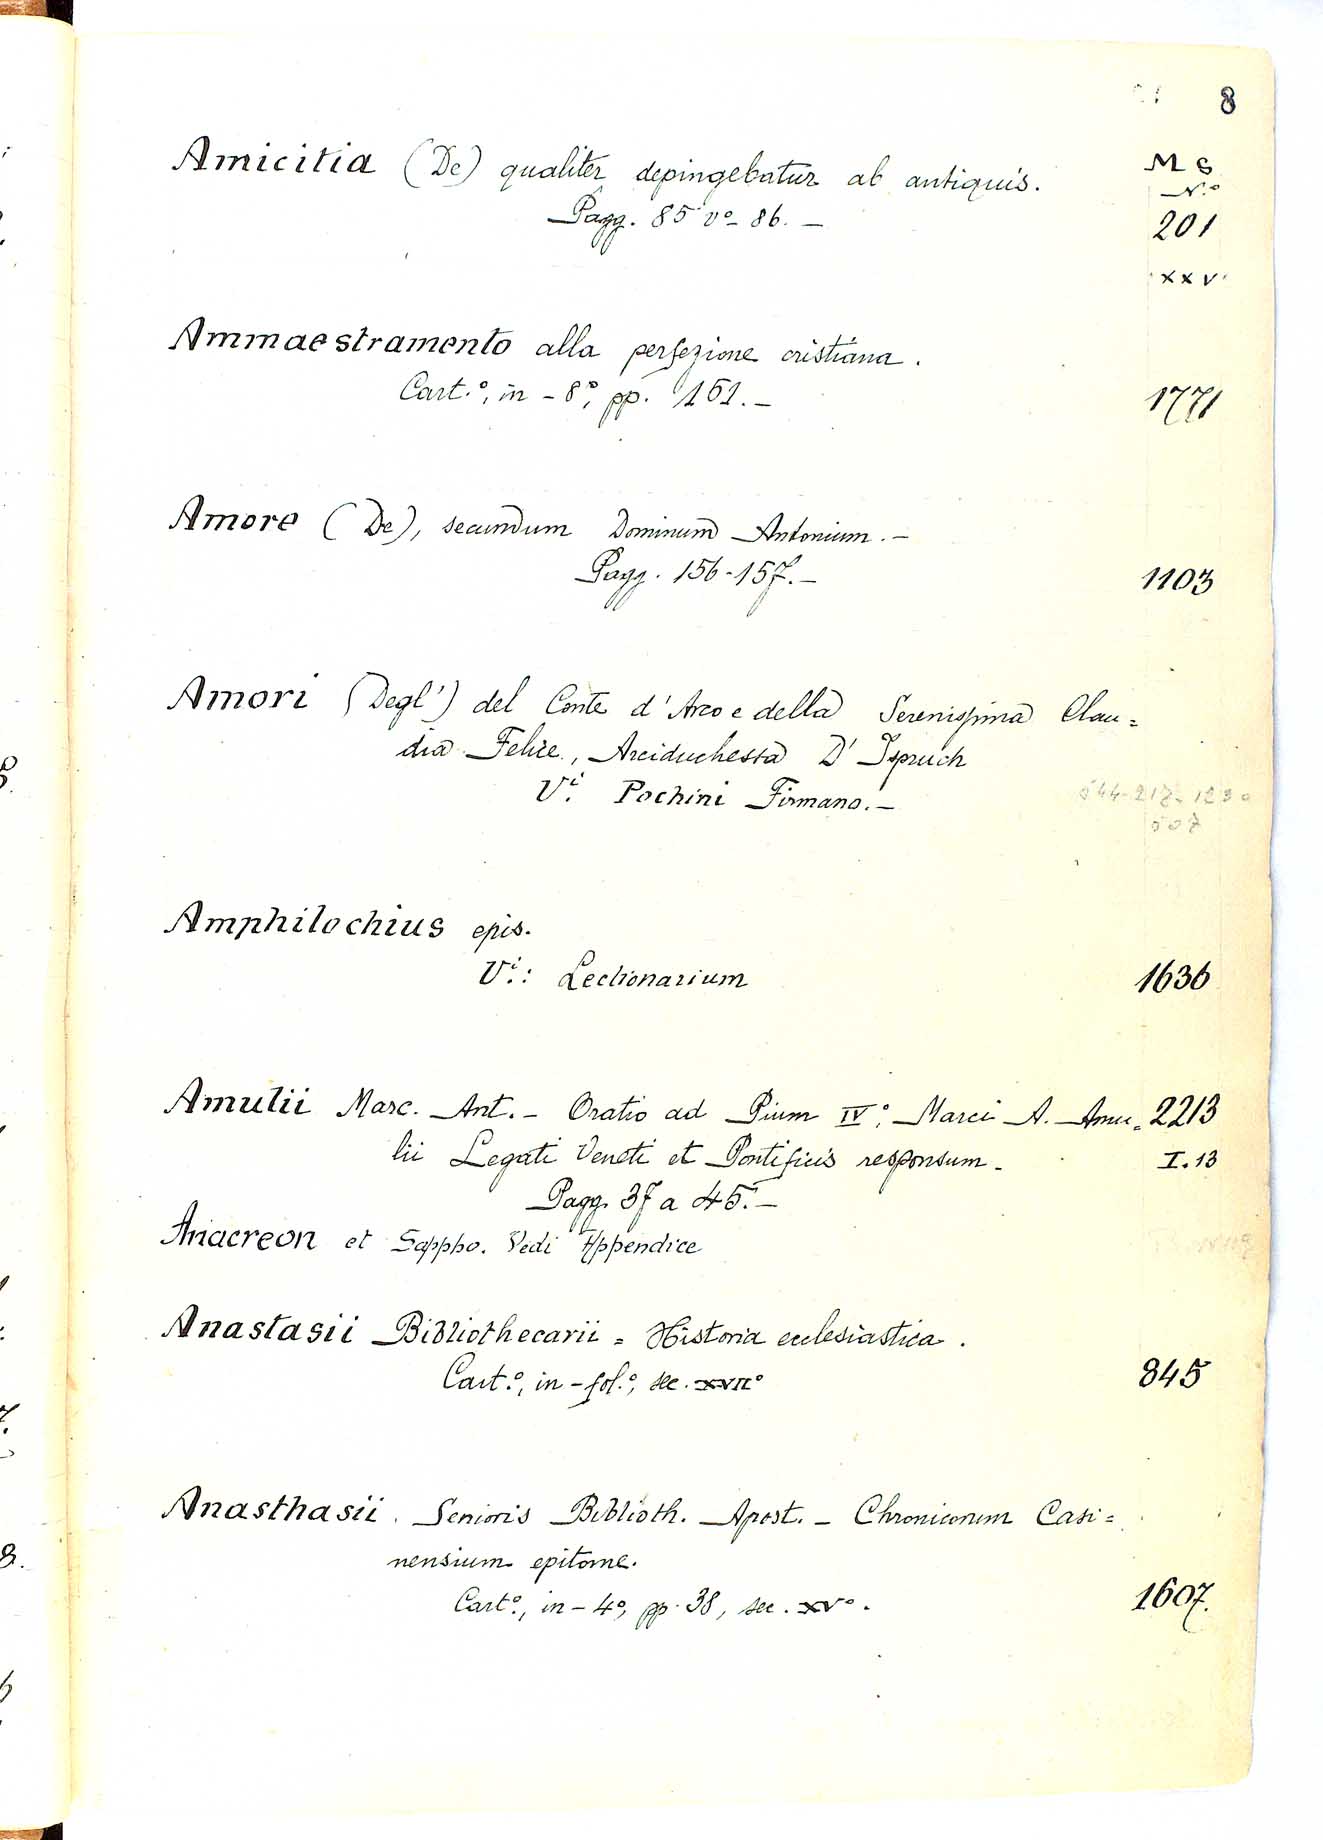 8
Amicitia (De) qualiter depingebatur ab antiquis. MS
N.º
Pagg. 85 vº- 86. — 201
XXV
Ammaestramento alla perfezione cristiana.
Cart.º, in - 8º, pp. 161. — 1771
Amore (De), secundum Dominum Antonium. —
Pagg. 156-157. — 1103
Amori (Degl') del Conte d'Arco e della Serenissima Clau=
dia Felice, Arciduchessa D' Ispruch
Vi. Pochini Firmano. — 544-217-1230
507
Amphilochius epis.
Vi.: Lectionarium 1636
Amulii Marc. Ant. - Oratio ad Pium IVº; Marci A. Amu= 2213
lii Legati Veneti et Pontificis responsum - I.13
Pagg. 37 a 45. —
Anacreon et Sappho. Vedi Appendice
Anastasii Bibliothecarii = Historia ecclesiastica.
Cart.º, in - fol.º, sec. XVIIº 845
Anasthasii Senioris Biblioth. Apost. - Chroniconum Casi=
nensium epitome.
Cartº., in - 4º, pp. 38, sec. XVº. 1607.